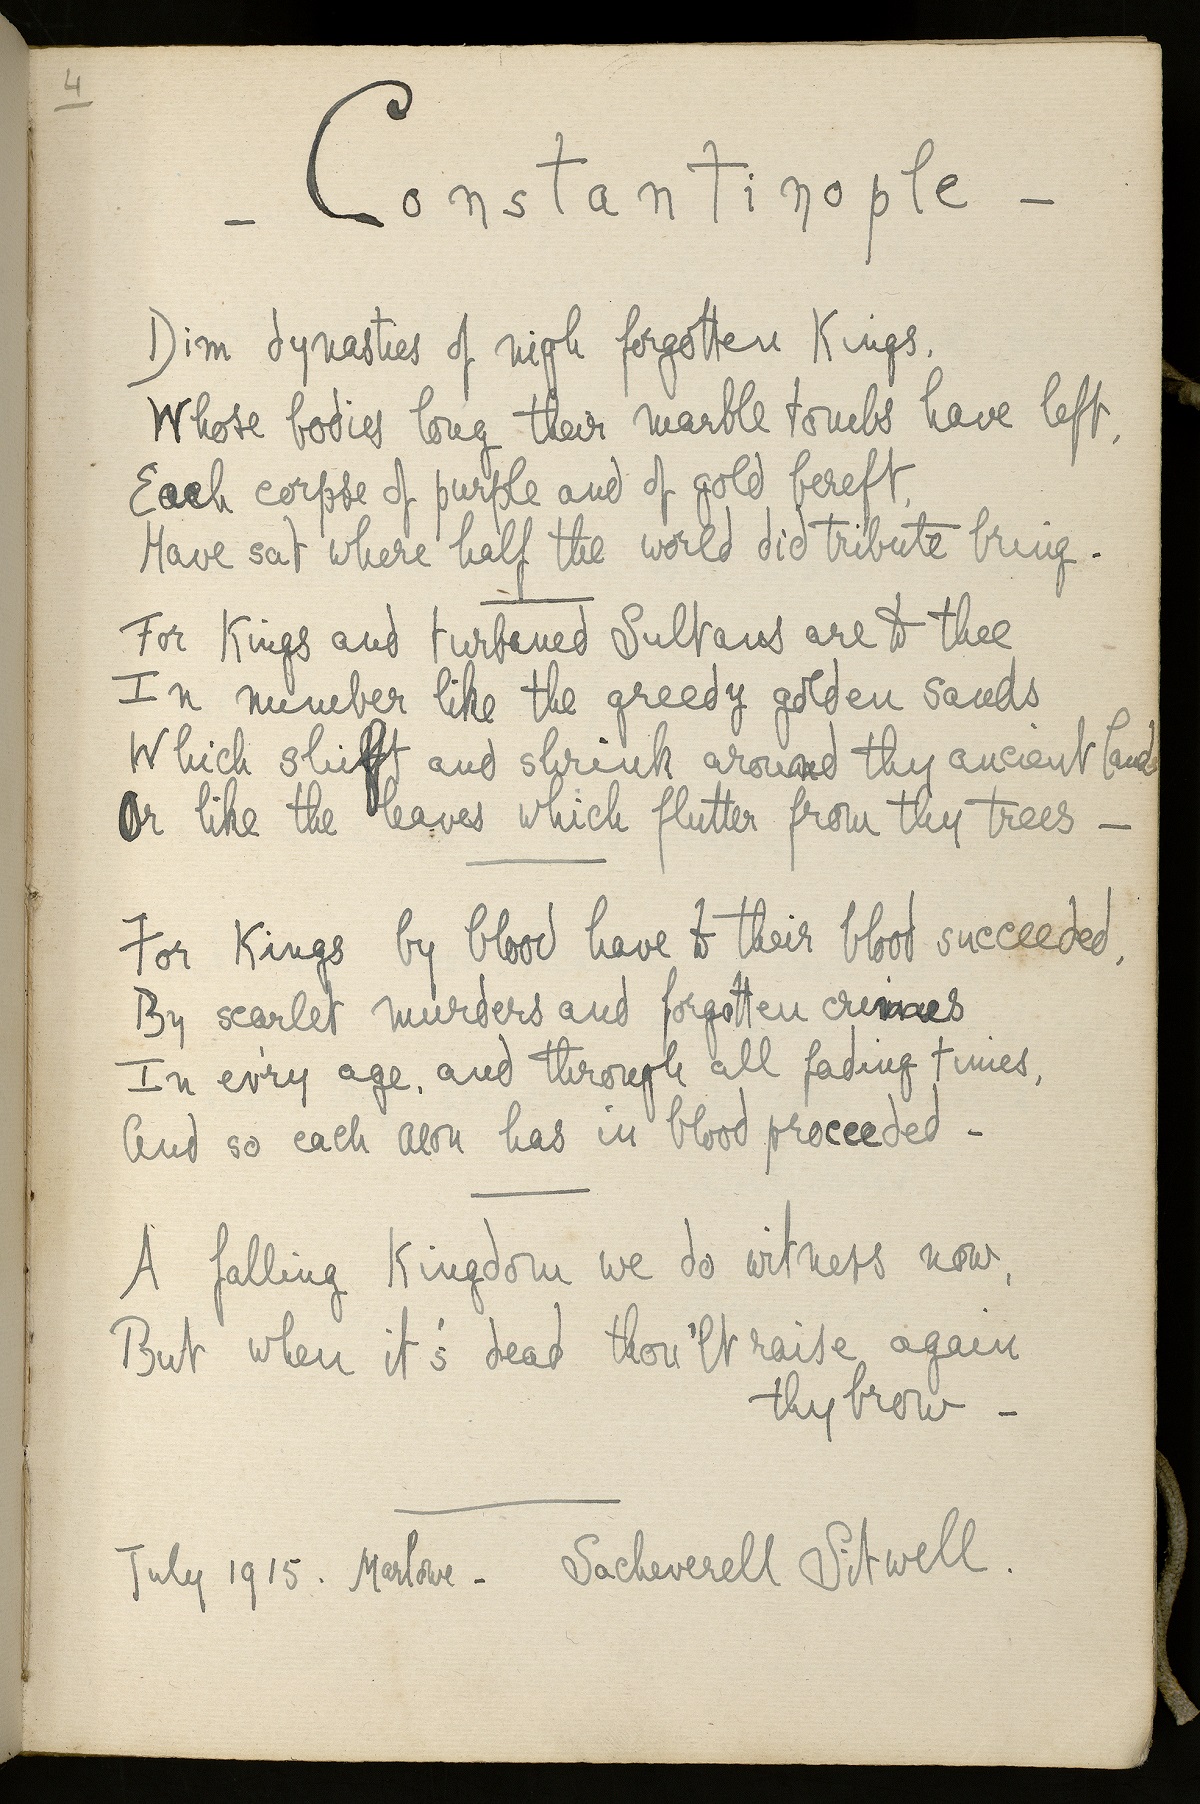 4
- Constantinople -
Dim dynasties of nigh forgotten Kings,
Whose bodies long their marble tombs have left,
Each corpse of purple and of gold bereft,
Have sat where half the world did tribute bring.
For Kings and turbaned Sultans are to thee
In number like the greedy golden sands
Which shift and shrink around thy ancient lands
Or like the leaves which flutter from thy trees —
For Kings by blood have to their blood succeeded,
By scarlet murders and forgotten crimes
In ev'ry age, and through all fading times,
And so each aeon has in blood proceeded -
A falling Kingdom we do witness now,
But when it's dead thou'lt raise again
thy brow -
July 1915. Marlowe - Sacheverell Sitwell.